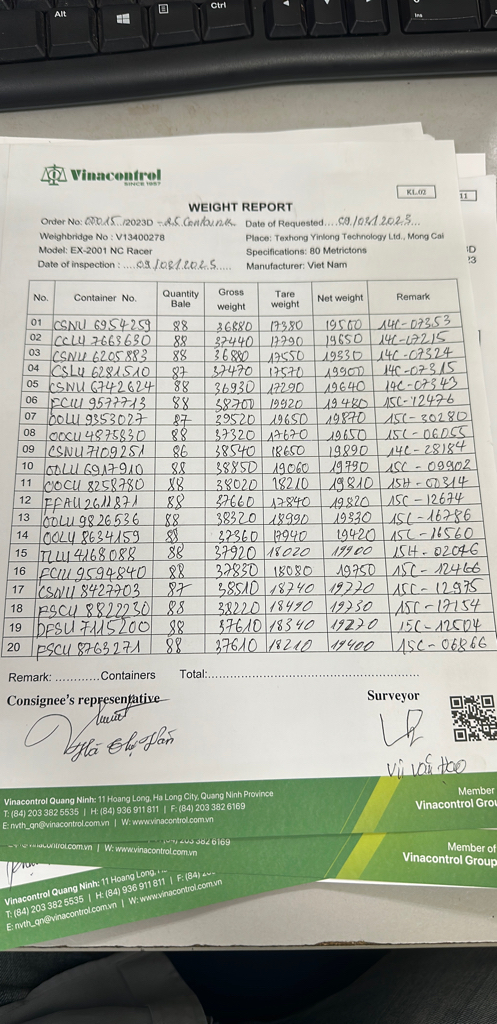 Alt
Ctrl
Ins
Vinacontrol
SINCE 1957
KL.02
11
WEIGHT REPORT
Order No: 00015 /2023D - RS Container Date of Requested....09/08/2023...
Weighbridge No : V13400278 Place: Texhong Yinlong Technology Ltd., Mong Cai
Model: EX-2001 NC Racer Specifications: 80 Metrictons
Date of inspection :....09/08/2023..... Manufacturer: Viet Nam
No. Container No. Quantity Bale Gross weight Tare weight Net weight Remark
01 CSNU 6954259 88 36880 17380 19500 14C-07353
02 CCLU 7663630 88 37440 17790 19650 14C-07215
03 CSNU 6205883 88 36880 17550 19330 14C-07324
04 CSLU 6281510 87 37470 17570 19900 14C-07315
05 CSNU 6742624 88 36930 17290 19640 14C-07343
06 FCIU 9577713 88 38700 19920 15C-12476
07 OOLU 9353027 87 39520 19650 19870 15C-30280
08 OOCU 4875830 88 37320 17670 19650 15C-06055
09 CSNU 7109251 86 38540 18650 19890 14C-28184
10 OOLU 6917910 88 38850 19060 19790 15C-09902
11 OOCU 8258780 88 38020 18210 19810 15H-00314
12 FFAU 2611871 88 37660 17840 19820 15C-12674
13 OOLU 9826536 88 38320 18990 19330 15C-16786
14 OOLU 8634159 88 37360 17940 19420 15C-16560
15 TLLU 4168088 88 37920 18020 19900 15H-02046
16 FCIU 9594840 88 37830 18080 19750 15C-12466
17 CSNU 8427703 87 38510 18740 19770 15C-12975
18 FSCU 8822230 88 38220 18490 19730 15C-17154
19 DFSU 7115200 88 37610 18340 19270 15C-12504
20 FSCU 8763271 88 37610 18210 19400 15C-06866
Remark: ............Containers Total:......................................................
Consignee's representative Surveyor
Vũ Văn
Vinacontrol Quang Ninh: 11 Hoang Long, Ha Long City, Quang Ninh Province
T: (84) 203 382 5535 | H: (84) 936 911 811 | F: (84) 203 382 6169
E: nvth_qn@vinacontrol.com.vn | W: www.vinacontrol.com.vn
Member
Vinacontrol Grou
W: www.vinacontrol.com.vn
Member of
Vinacontrol Group
Vinacontrol Quang Ninh: 11 Hoang Long,
T: (84) 203 382 5535 | H: (84) 936 911 811 | F: (84)
E: nvth_qn@vinacontrol.com.vn | W: www.vinacontrol.com.vn